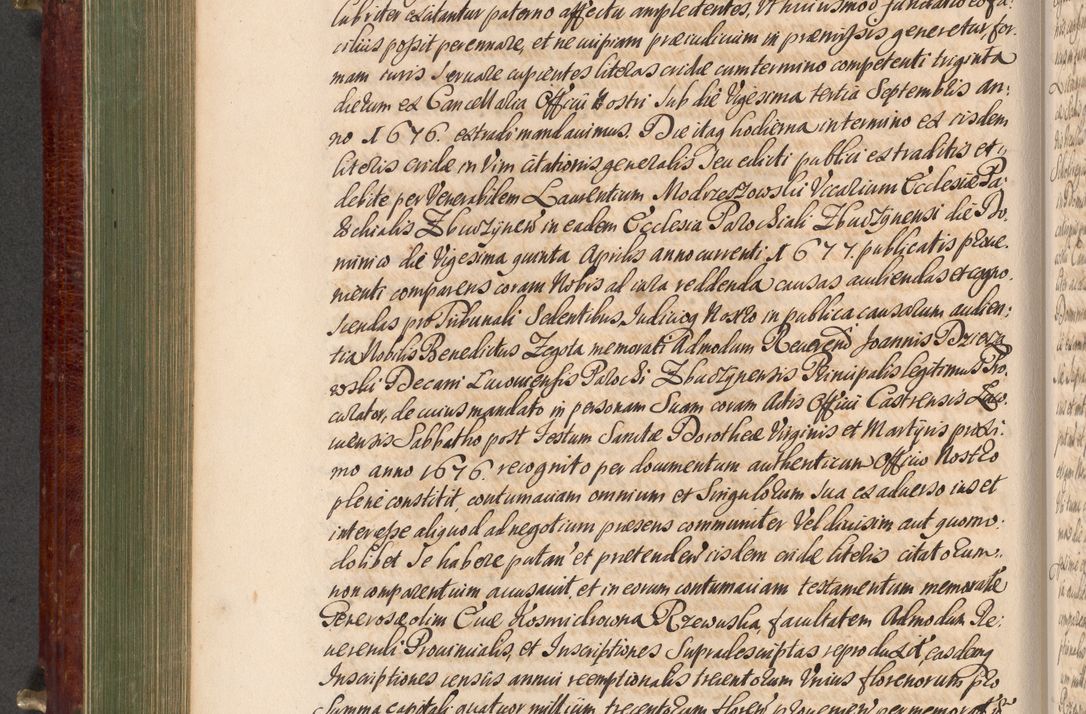 lubriter excitantur paterno affectu amplectentes, Ut huiusmodi fundatio eo fa:
cilius possit perennare, et ne cuipiam præiudicium in præmissis generetur, for
mam iuris servare cupientes literas cridæ cum termino competenti triginta
dierum ex Cancellaria Officii Nostri sub die Vigesima tertia Septembris an:
no 1676. extradi mandavimus. Die itaq hodierna in termino ex eisdem
literis cridæ in Vim citationis generalis seu edicti publici extraditis et
debite per Venerabilem Laurentium Modrzeszowski Vicarium Ecclesiæ Pa:
rochialis Zbuczynen in eadem Ecclesia Parochiali Zbuczynensi die Do:
minico die Vigesima quinta Aprilis anno currenti 1677. publicatis prove:
nienti comparens coram Nobis ad iura reddenda causas audiendas et cogno:
scendas pro Tribunali Sedentibus, Iudicioq Nostro in publica causarum audien:
tia Nobilis Benedictus Zegota memorati Admodum Reverend Joannis
woski Decani Lucoviensis Parochi Zbuczynensis Principalis legitimus Pro:
curator, de cuius mandato in personam Suam coram Actis Officii Castrensis Luco
viensis Sabbatho post Festum Sanctæ Dorotheæ Virginis et Martyris proxi:
mo anno 1676. recognito per documentum authenticum Officio Nostro
plene constitit, contumaciam omnium et Singulorum sua ex adverso ius et
interesse aliquod ad negotium præsens communiter Vel divisim aut quomo:
dolibet se habere putan et prætenden eisdem cridæ literis citatorum,
non comparentium accusavit, et in eorum contumaciam testamentum memoratæ
Generosæ olim Evæ Kosmidrowna Rzewuska, facultatem Admodum Re:
verendi Provincialis, et Inscriptiones Supradescriptas reproduxit, easdemq
Inscriptiones census annui reemptionalis trecentorum Unius florenorum pro
Summa capitali quatuor millium trecentorum floren